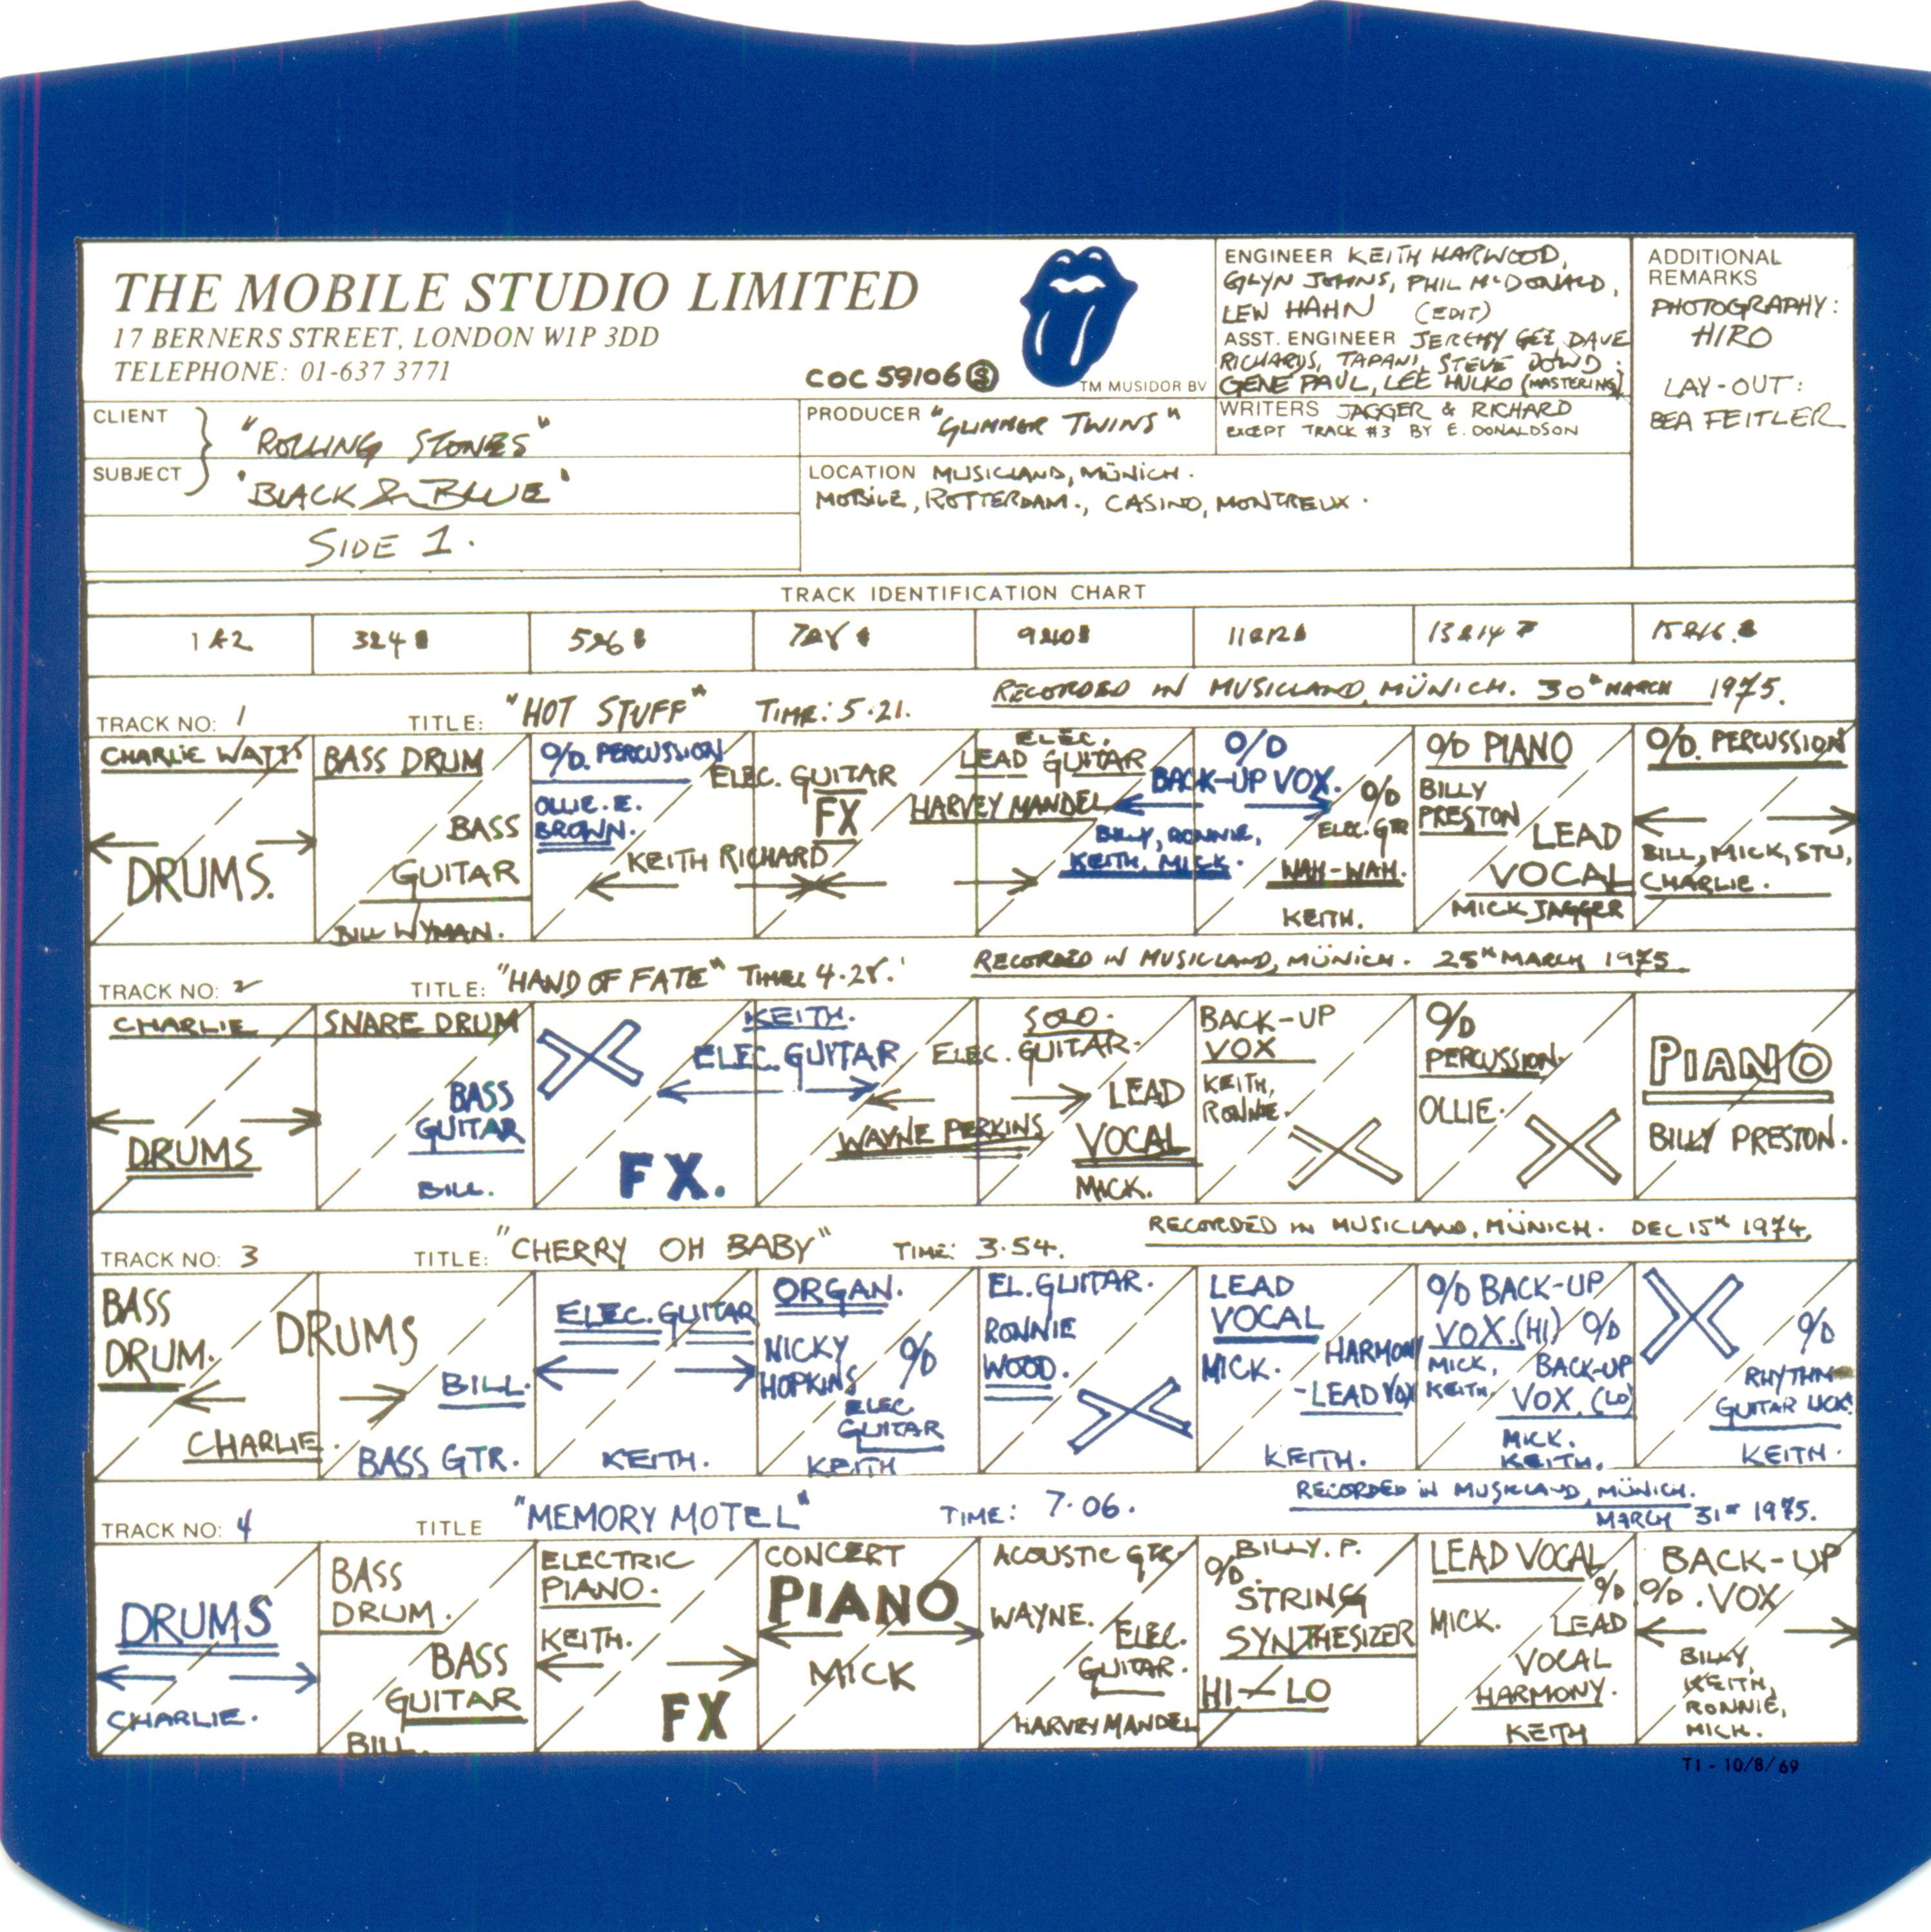 THE MOBILE STUDIO LIMITED
17 BERNERS STREET, LONDON W1P 3DD
TELEPHONE: 01-637 3771
COC 59106 S
TM MUSIDOR BV
ENGINEER KEITH HARWOOD,
GLYN JOHNS, PHIL McDONALD,
LEW HAHN (EDIT)
ASST. ENGINEER JEREMY GEE, DAVE
RICHARDS, TAPANI, STEVE DOWD.
GENE PAUL, LEE HULKO (MASTERING)
ADDITIONAL
REMARKS
PHOTOGRAPHY:
HIRO
LAY-OUT:
BEA FEITLER
CLIENT
"ROLLING STONES"
SUBJECT
'BLACK & BLUE'
SIDE 1.
PRODUCER "GLIMMER TWINS"
WRITERS JAGGER & RICHARD
EXCEPT TRACK #3 BY E. DONALDSON
LOCATION MUSICLAND, MÜNICH.
MOBILE, ROTTERDAM., CASINO, MONTREUX.
TRACK IDENTIFICATION CHART
1 & 2
3 & 4
5 & 6
7 & 8
9 & 10
11 & 12
13 & 14
15 & 16
TRACK NO: 1
TITLE: "HOT STUFF" TIME: 5.21.
RECORDED IN MUSICLAND, MÜNICH. 30th MARCH 1975.
CHARLIE WATTS
DRUMS.
BASS DRUM
BASS
GUITAR
BILL WYMAN.
O/D. PERCUSSION
OLLIE. E.
BROWN.
ELEC. GUITAR
FX
KEITH RICHARD
ELEC.
LEAD GUITAR
HARVEY MANDEL
O/D
BACK-UP VOX.
BILLY, RONNIE,
KEITH, MICK.
O/D
ELEC. GTR
WAH-WAH.
KEITH.
O/D PIANO
BILLY
PRESTON
LEAD
VOCAL
MICK JAGGER
O/D. PERCUSSION
BILL, MICK, STU,
CHARLIE.
TRACK NO: 2
TITLE: "HAND OF FATE" TIME: 4.28.
RECORDED IN MUSICLAND, MÜNICH. 25th MARCH 1975
CHARLIE
DRUMS
SNARE DRUM
BASS
GUITAR
BILL.
FX.
KEITH.
ELEC. GUITAR
SOLO.
ELEC. GUITAR.
WAYNE PERKINS
LEAD
VOCAL
MICK.
BACK-UP
VOX
KEITH,
RONNIE.
O/D
PERCUSSION.
OLLIE.
PIANO
BILLY PRESTON.
TRACK NO: 3
TITLE: "CHERRY OH BABY" TIME: 3.54.
RECORDED IN MUSICLAND, MÜNICH. DEC 15th 1974,
BASS
DRUM.
DRUMS
CHARLIE.
BILL.
BASS GTR.
ELEC. GUITAR
KEITH.
ORGAN.
NICKY
HOPKINS
O/D
ELEC
GUITAR
KEITH
EL. GUITAR.
RONNIE
WOOD.
LEAD
VOCAL
MICK.
HARMONY
-LEAD VOX
KEITH.
O/D BACK-UP
VOX. (HI)
MICK,
KEITH.
O/D
BACK-UP
VOX. (LO)
MICK.
KEITH.
O/D
RHYTHM
GUITAR LICK.
KEITH.
TRACK NO: 4
TITLE "MEMORY MOTEL" TIME: 7.06.
RECORDED IN MUSICLAND, MÜNICH.
MARCH 31st 1975.
DRUMS
CHARLIE.
BASS
DRUM.
BASS
GUITAR
BILL.
ELECTRIC
PIANO.
KEITH.
FX
CONCERT
PIANO
MICK
ACOUSTIC GTR.
WAYNE.
ELEC.
GUITAR.
HARVEY MANDEL
BILLY. P.
O/D.
STRING
SYNTHESIZER
HI LO
LEAD VOCAL
MICK.
O/D
LEAD
VOCAL
HARMONY.
KEITH
BACK-UP
O/D. VOX
BILLY,
KEITH,
RONNIE,
MICK.
T1 - 10/8/69